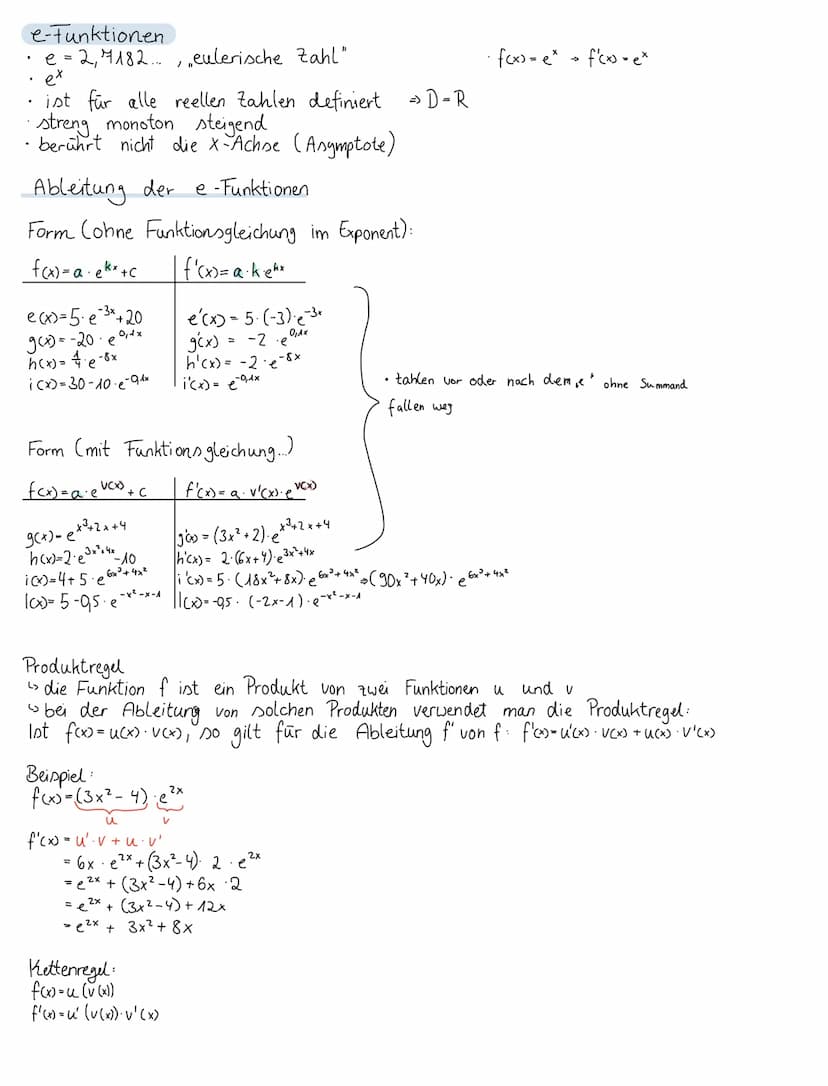 e-Funktionen
· e = 2,7182... , „eulerische Zahl"
· f(x) = e^x → f'(x) = e^x
· e^x
· ist für alle reellen Zahlen definiert ⇒ D = R
· streng monoton steigend
· berührt nicht die X-Achse (Asymptote)
Ableitung der e-Funktionen
Form (ohne Funktionsgleichung im Exponent):
f(x) = a · e^kx + c | f'(x) = a · k e^kx
e(x) = 5 · e^-3x + 20 | e'(x) = 5 · (-3) · e^-3x
g(x) = -20 · e^0,1x | g'(x) = -2 · e^0,1x
h(x) = 1/4 · e^-8x | h'(x) = -2 · e^-8x
i(x) = 30 - 10 · e^-0,1x | i'(x) = e^-0,1x
· Zahlen vor oder nach dem „e" ohne Summand
fallen weg
Form (mit Funktionsgleichung...)
f(x) = a · e^v(x) + c | f'(x) = a · v'(x) · e^v(x)
g(x) = e^x³+2x+4 | g'(x) = (3x² + 2) · e^x³+2x+4
h(x) = 2 · e^3x²+4x - 10 | h'(x) = 2 · (6x + 4) · e^3x²+4x
i(x) = 4 + 5 · e^6x³+4x² | i'(x) = 5 · (18x² + 8x) · e^6x³+4x² ⇒ (90x² + 40x) · e^6x³+4x²
l(x) = 5 - 0,5 · e^-x²-x-1 | l(x) = -0,5 · (-2x - 1) · e^-x²-x-1
Produktregel
↳ die Funktion f ist ein Produkt von zwei Funktionen u und v
↳ bei der Ableitung von solchen Produkten verwendet man die Produktregel:
Ist f(x) = u(x) · v(x), so gilt für die Ableitung f' von f: f'(x) = u'(x) · v(x) + u(x) · v'(x)
Beispiel:
f(x) = (3x² - 4) · e^2x
u v
f'(x) = u' · v + u · v'
= 6x · e^2x + (3x² - 4) · 2 · e^2x
= e^2x + (3x² - 4) + 6x · 2
= e^2x + (3x² - 4) + 12x
= e^2x + 3x² + 8x
Kettenregel:
f(x) = u(v(x))
f'(x) = u'(v(x)) · v'(x)